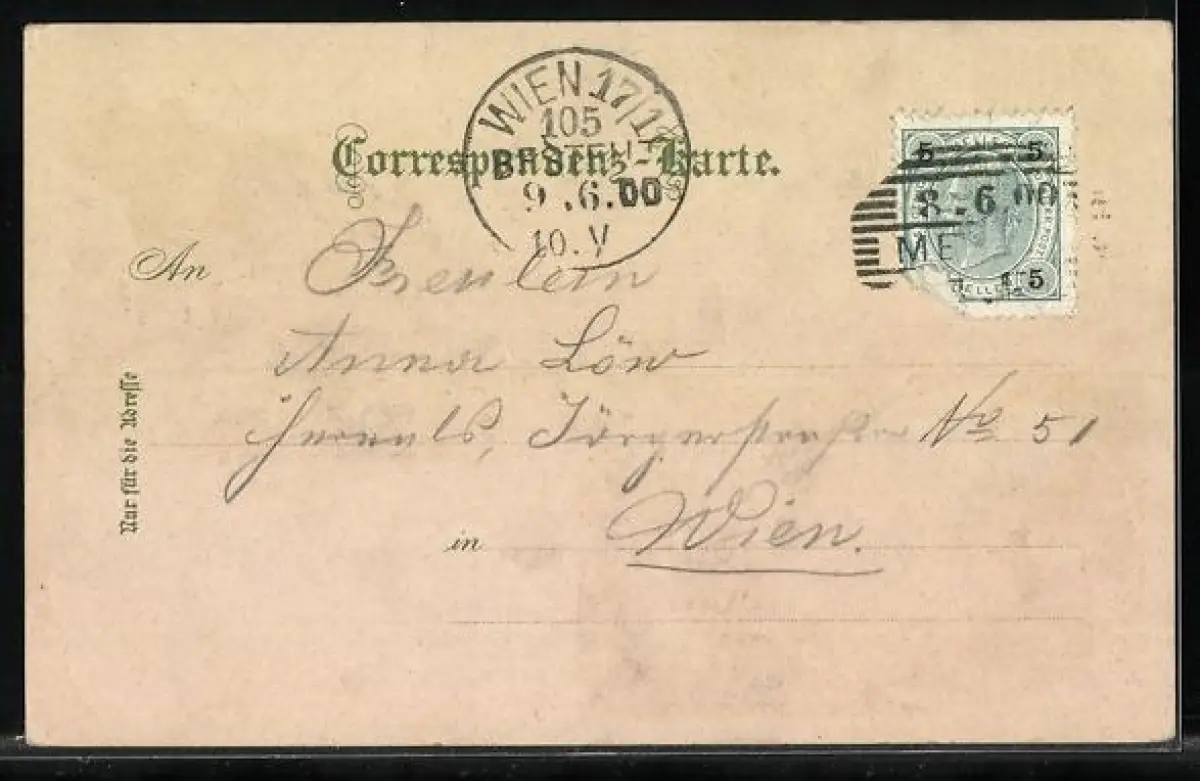 WIEN 17/1
105
BESTELLT
9.6.00
10.V
Correspondenz-Karte.
5 5
8.6.00
ME
5
An Freulein
Anna Löw
Hernals, Jörgerstraße No 51
in Wien.
Nur für die Adresse